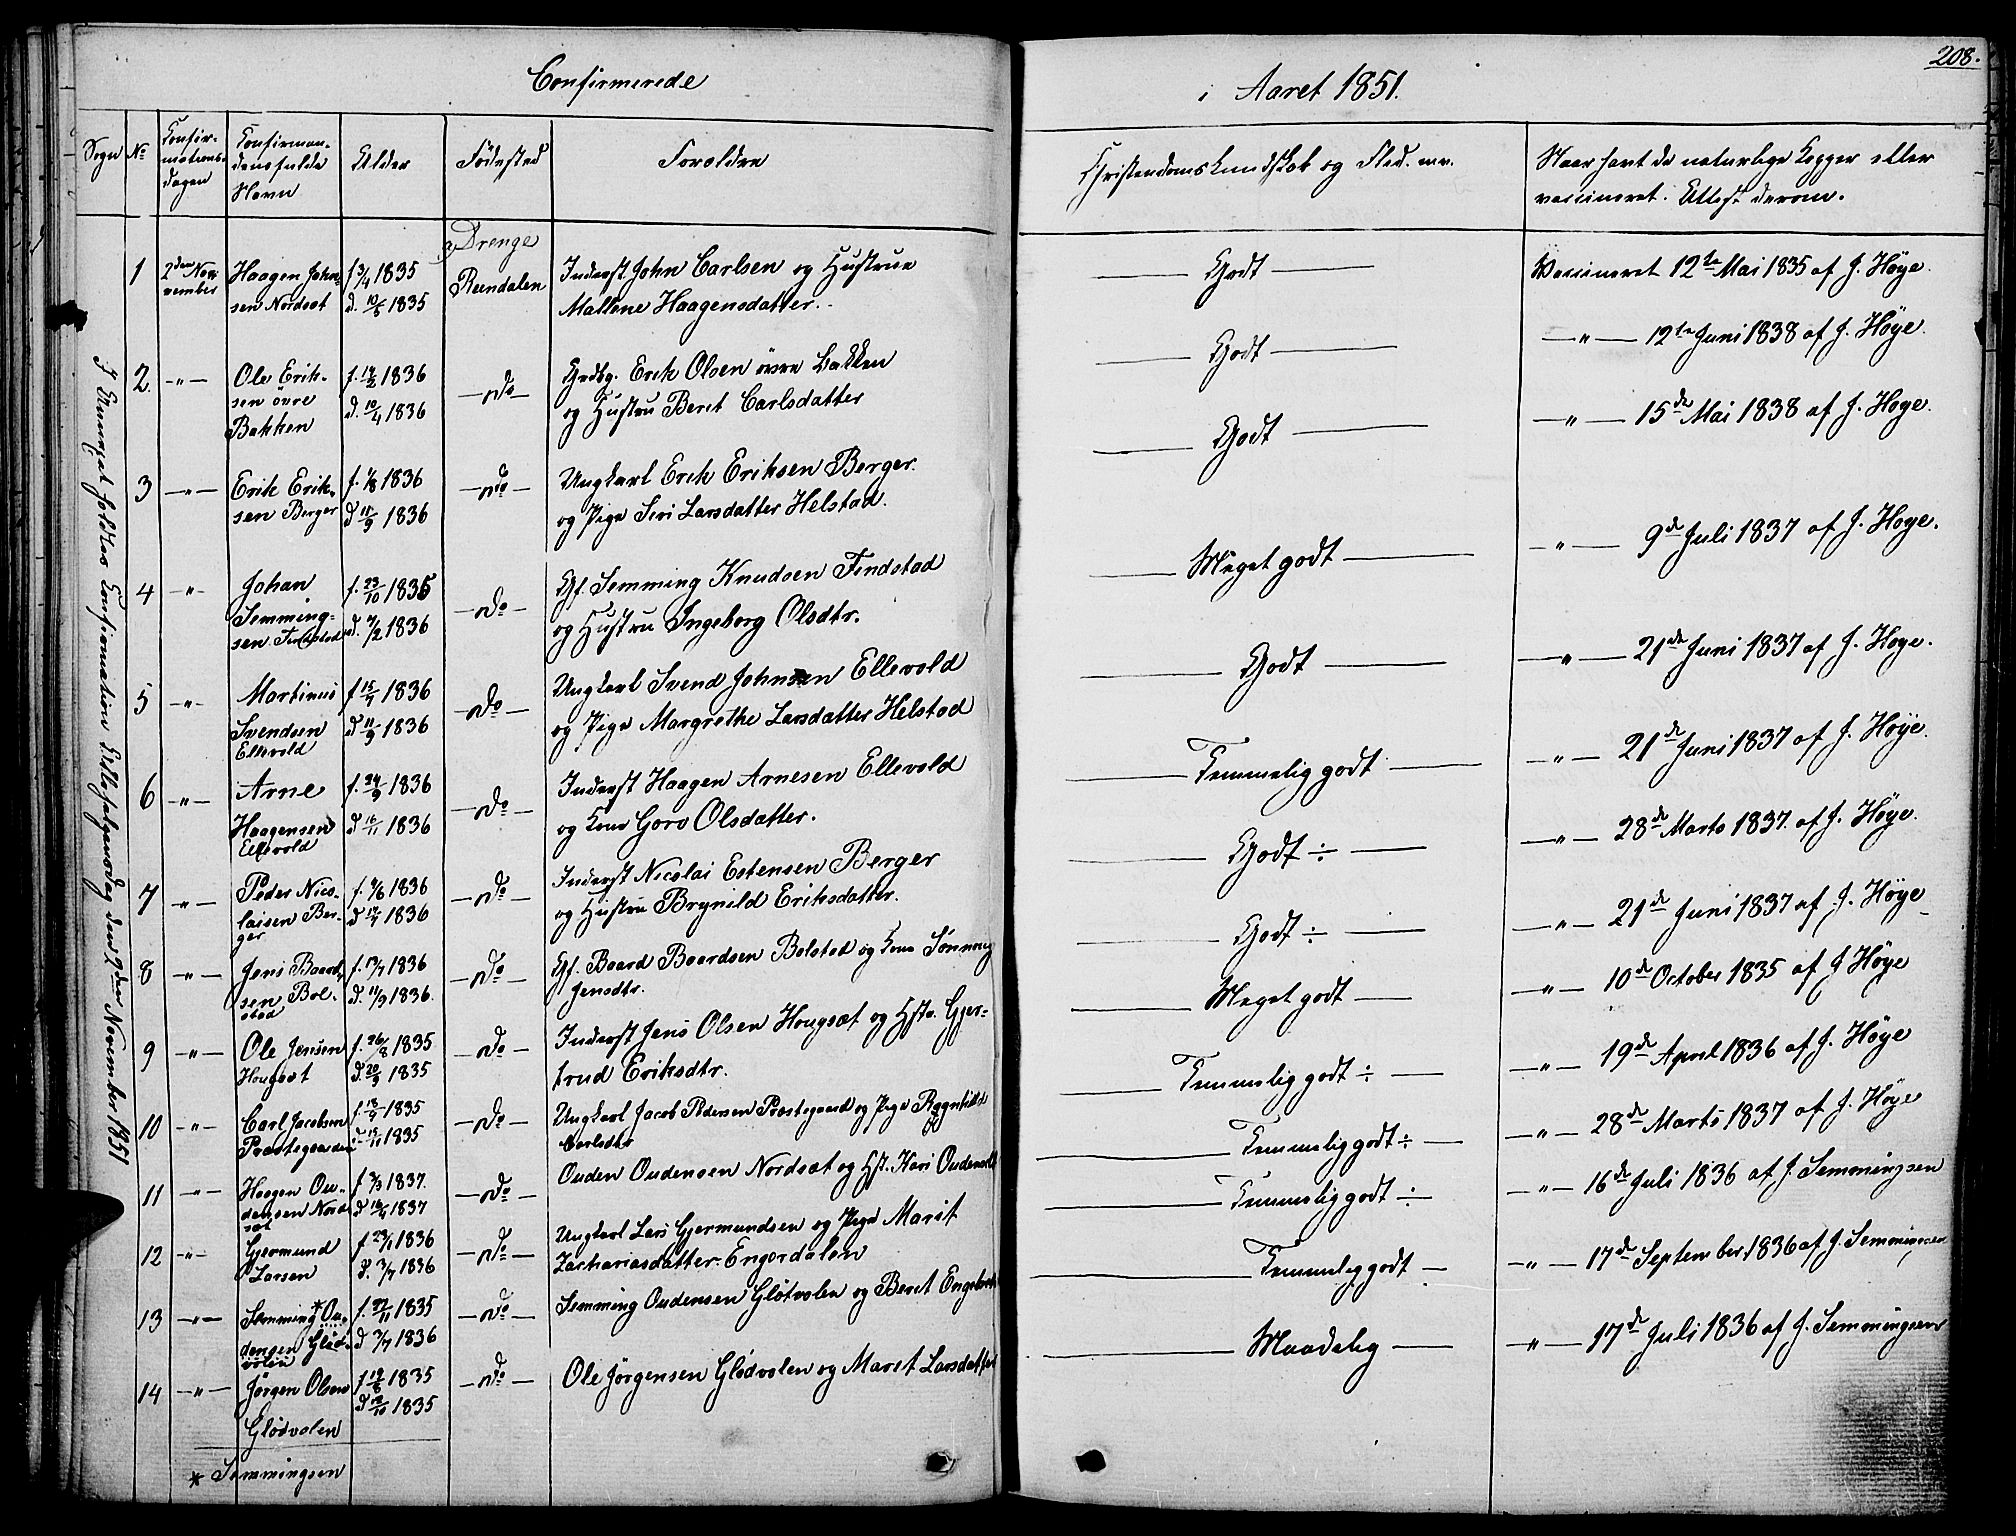 208.
Confirmerede
i Aaret 1851.
Sogn
No
Confir-
mations-
dagen
Confirman-
dens fulde
Navn
Alder
Fødested
Forældre
Christendomskundskab og Flid. mv.
Naar havt de naturlige Kopper eller
vaccineret. Attest derom.
I Rennesat holdtes Confirmation den 2den November 1851
a, Drenge
1 2den No- Haagen John- f 3/4 1835 Rendalen Inderst John Carlsen og Hustrue
vember sen Nordsæt d. 10/5 1835 Mallene Haagensdatter.
Godt
Vaccineret 12te Mai 1835 af J. Höye.
2. -"- Ole Erik- f. 14/2 1836 -do- Grdbg. Erik Olsen övre Bakken
sen övre d. 10/4 1836 og Hustru Beret Carlsdatter
Bakken
Godt
-"- 12te Juni 1838 af J. Höye.
3 -"- Erik Erik- f. 1/8 1836 -do- Ungkarl Erik Eriksen Berger.
sen Berger d 11/9 1836 og Pige Siri Larsdatter Helstad.
Godt
-"- 15de Mai 1838 af J. Höye.
4 -"- Johan f. 23/10 1835 -do- Gf. Semming Knudsen Findstad
Semming- d. 7/2 1836 og Hustru Ingeborg Olsdtr.
sen Findstad
Meget godt
-"- 9de Juli 1837 af J. Höye.
5 -"- Martinus f 15/7 1836 -do- Ungkarl Svend Johnsen Ellevold
Svendsen d 11/9 1836 og Pige Margrethe Larsdatter Helstad
Ellevold
Godt
-"- 21de Juni 1837 af J. Höye.
6 -"- Arne f. 24/9 1836 -do- Inderst Haagen Arnesen Ellevold
Haagensen d 16/11 1836 og Kone Goro Olsdatter.
Ellevold
Temmelig godt
-"- 21de Juni 1837 af J. Höye.
7 -"- Peder Nico- f. 9/6 1836 -do- Inderst Nicolai Estensen Berger
laisen Ber- d 17/7 1836 og Hustru Brynild Eriksdatter.
ger
Godt ÷
-"- 28de Marts 1837. af J. Höye.
8 -"- Jens Baard- f. 17/7 1836 -do- Gf. Baard Baardsen Bolstad og Kone Sönnov
sen Bol- d. 11/9 1836. Jensdtr.
stad
Godt ÷
-"- 21de Juni 1837 af J. Höye
9 -"- Ole Jensen f. 26/8 1835 -do- Inderst Jens Olsen Hougsæt og Hstr. Gjer-
Hougsæt d. 20/9 1835 trud Eriksdtr.
Meget godt
-"- 10de October 1835 af J Höye
10 -"- Carl Jacobsen f. 18/9 1835 -do- Ungkarl Jacob Pedersen Præstegaard og Pige Ragnhild
Præstegaarden d 15/11 1835 Carlsdtr
Temmelig godt ÷
-"- 19de April 1836 af J. Höye
11 -"- Haagen Ou- f 3/3 1837. -do- Ouden Oudensen Nordsæt og Hst. Kari Oudensd
densen Nord- d 16/4 1837
sæt
Temmelig godt ÷
-"- 28de Marts 1837 af J. Höye
12 -"- Gjermund f 23/1 1836 -do- Ungkarl Lars Gjermundsen og Pige Marit
Larsen d. 3/7 1836 Zachariasdatter Engerdalen
Temmelig godt ÷
-"- 16de Juli 1836 af J. Semmingsen
13 -"- Semming* Ou- f. 27/11 1835 -do- Semming Oudensen Glötvolen og Beret
densen Glöt- d 3/7 1836
volen
Temmelig godt
-"- 17de September 1836 af J. Semmingsen
14 -"- Jörgen Olsen f 19/8 1835 -do- Ole Jörgensen Glödvolen og Maret Larsdatter
Glödvolen d 18/10 1835
Maadelig
-"- 17de Juli 1836 af J. Semmingsen
* Semmingsen